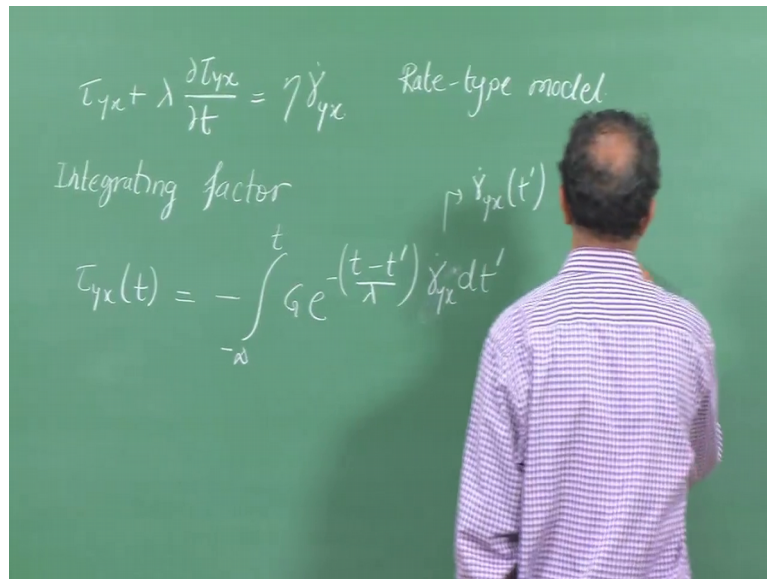 τyx + λ ∂τyx/∂t = η γ̇yx Rate-type model
Integrating factor
γ̇yx(t′)
τyx(t) = - ∫_{-∞}^{t} G e^{-((t-t′)/λ)} γ̇yx dt′